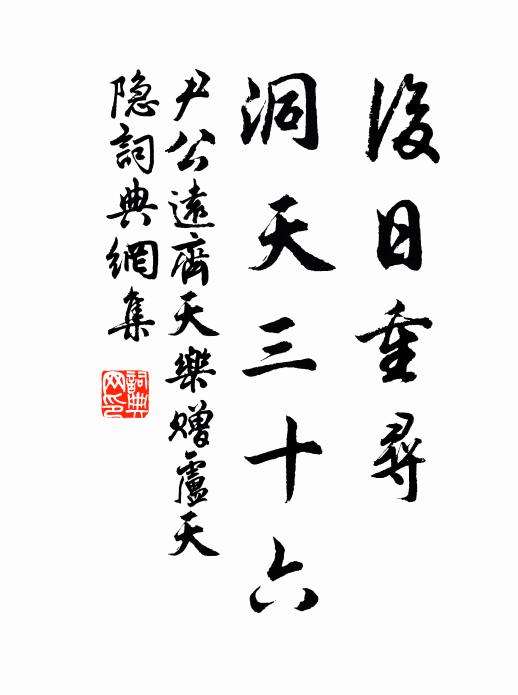 後日重尋
洞天三十六
尹公遠齊天樂赠盧天
隐詞典網集
詞典
网印